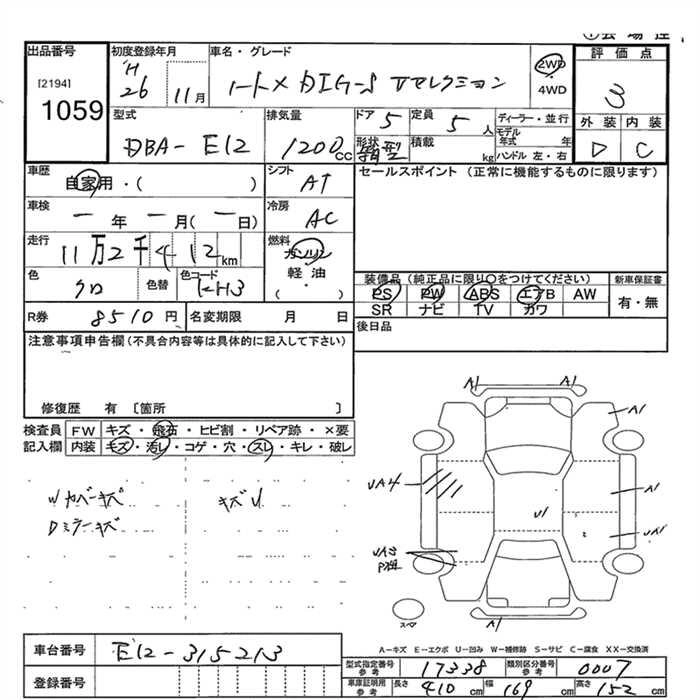 ①会場控
出品番号 初度登録年月 車名・グレード 評価点
[2194] H 26 11月 ノートX DIG-S Vセレクション 2WD 4WD 3
1059
型式 排気量 ドア 定員 ディーラー・並行 外装 内装
DBA-E12 1200cc 5 5人 モデル年式 年 D C
形状 箱型 積載 kg ハンドル 左・右
車歴 シフト セールスポイント (正常に機能するものに限ります)
自家用・( ) AT
車検 冷房
一年一月(一日) AC
走行 燃料
11万2千412km ガソリン
軽油
( )
色 クロ 色替 色コード KH3
装備品 (純正品に限り○をつけてください) 新車保証書
PS PW ABS エアB AW 有・無
SR ナビ TV カワ
R券 8510円 名変期限 月 日 後日品
注意事項申告欄(不具合内容等は具体的に記入して下さい)
修復歴 有 〔箇所 〕
検査員 FW キズ・飛石・ヒビ割・リペア跡・×要
記入欄 内装 キズ・汚レ・コゲ・穴・スレ・キレ・破レ
Wカバーキズ キズU
Dミラーキズ
A1 A1
A1
UA4 A1
U1 UA1
UA3
スペア A1
A-キズ E-エクボ U-凹み W-補修跡 S-サビ C-腐食 XX-交換済
車台番号 E12-315213
型式指定番号 参考 17338 類別区分番号 参考 0007
登録番号
車庫証明用 参考 長さ 410cm 幅 169cm 高さ 152cm